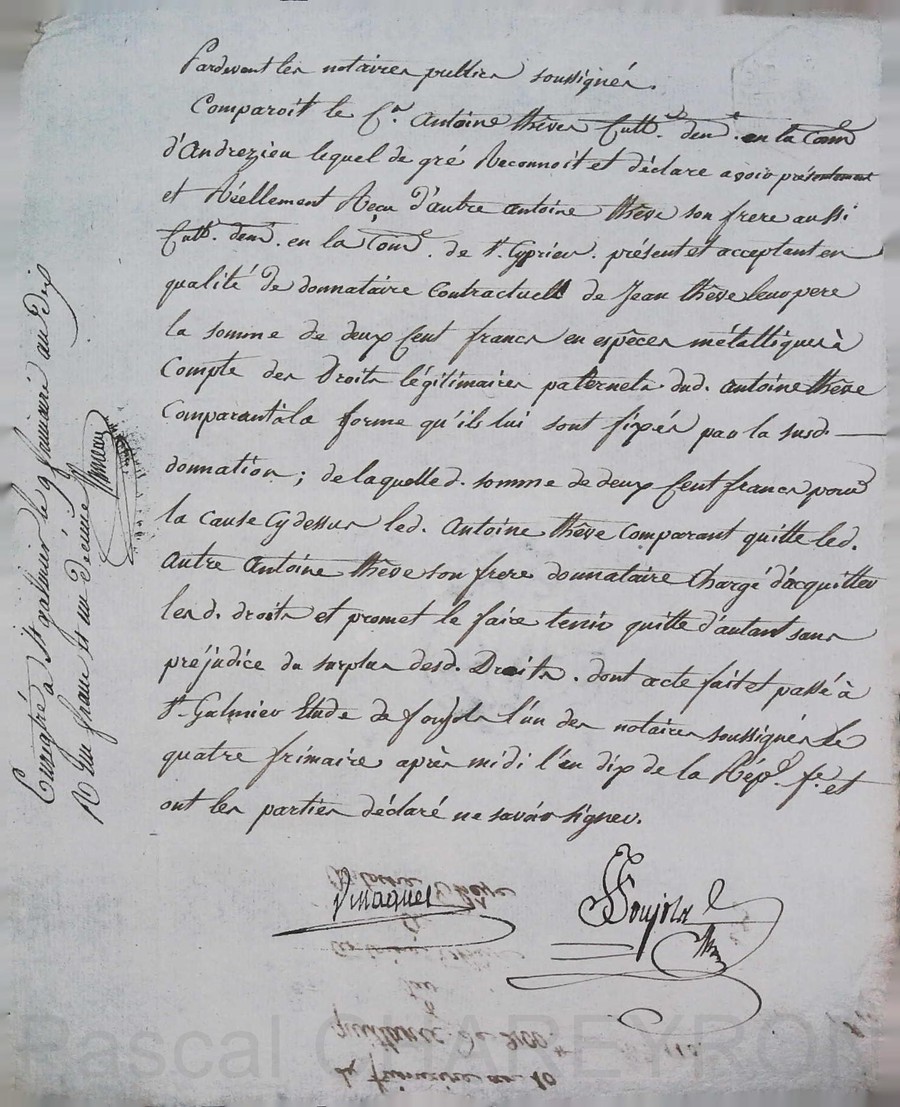 Pardevant les notaires publics soussignés.
Comparoit le C.en Antoine Thêve Cultr. demt. en la Comne
d'Andrezieu lequel de gré Reconnoit et déclare avoir présentement
et Réellement Recu d'autre antoine Thêve son frere aussi
Cultr. demt. en la Comne. de st. Cyprien. présent et acceptant en
qualité de donnataire Contractuell de Jean Thêve leur pere
la somme de deux Cent francs en espêces métalliques à
Compte des Droits légitimaires paternels dud. antoine Thêve
Comparant à la forme qu'ils lui sont fixés par la susd.
donnation ; de laquelle d. somme de deux Cent francs pour
la Cause Cy dessus led. Antoine Thêve Comparant quitte led.
Autre Antoine Thêve son frere donnataire Chargé d'acquitter
lesd. droits et promet le faire tenir quitte d'autant sans
préjudice du surplus desd. Droits. dont acte fait et passé à
st. Galmier Etude de foujols l'un des notaires soussignés le
quatre frimaire après midi l'an dix de la Rép.e fr.e et
ont les parties déclaré ne savoir signer.
Foujols
Enregistré à St. galmier le 9 frimaire an dix
R Un franc et un décime
quittance de 200
frimaire an 10
Pascal CHAREYRON